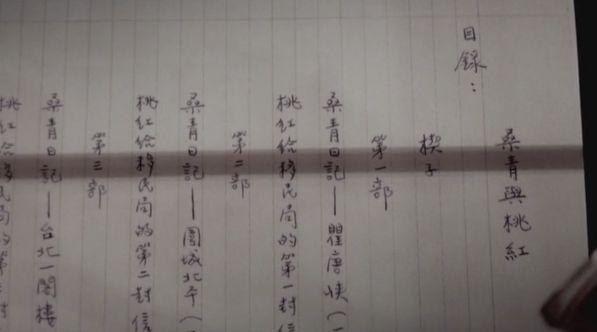 桑青與桃紅
目錄：
楔子
第一部
桑青日記——瞿塘峽（一
桃紅給移民局的第一封信
第二部
桑青日記——圍城北平（一
桃紅給移民局的第二封信
第三部
桑青日記——台北一閣樓
桃紅給移民局的第三封